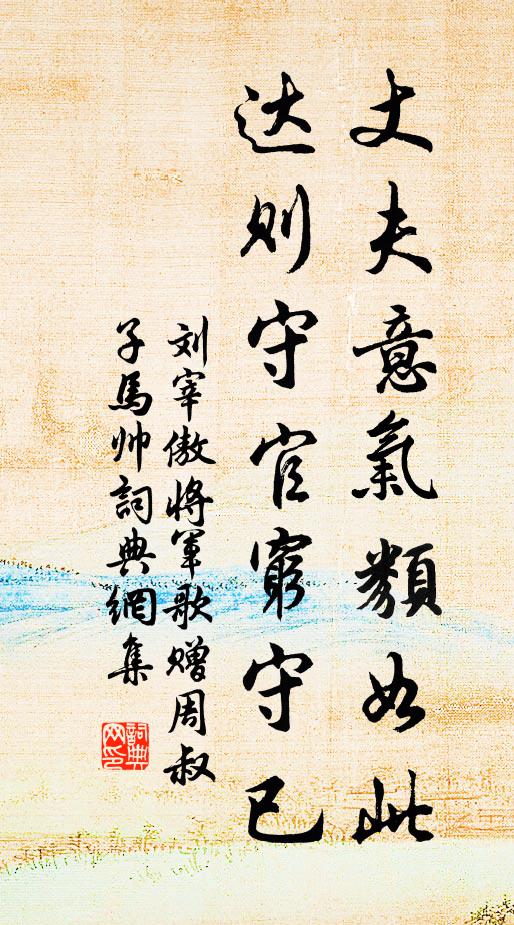 丈夫意氣類如此
达则守官窮守己
刘宰傲將軍歌赠周叔
子馬帅詞典網集
詞典网印